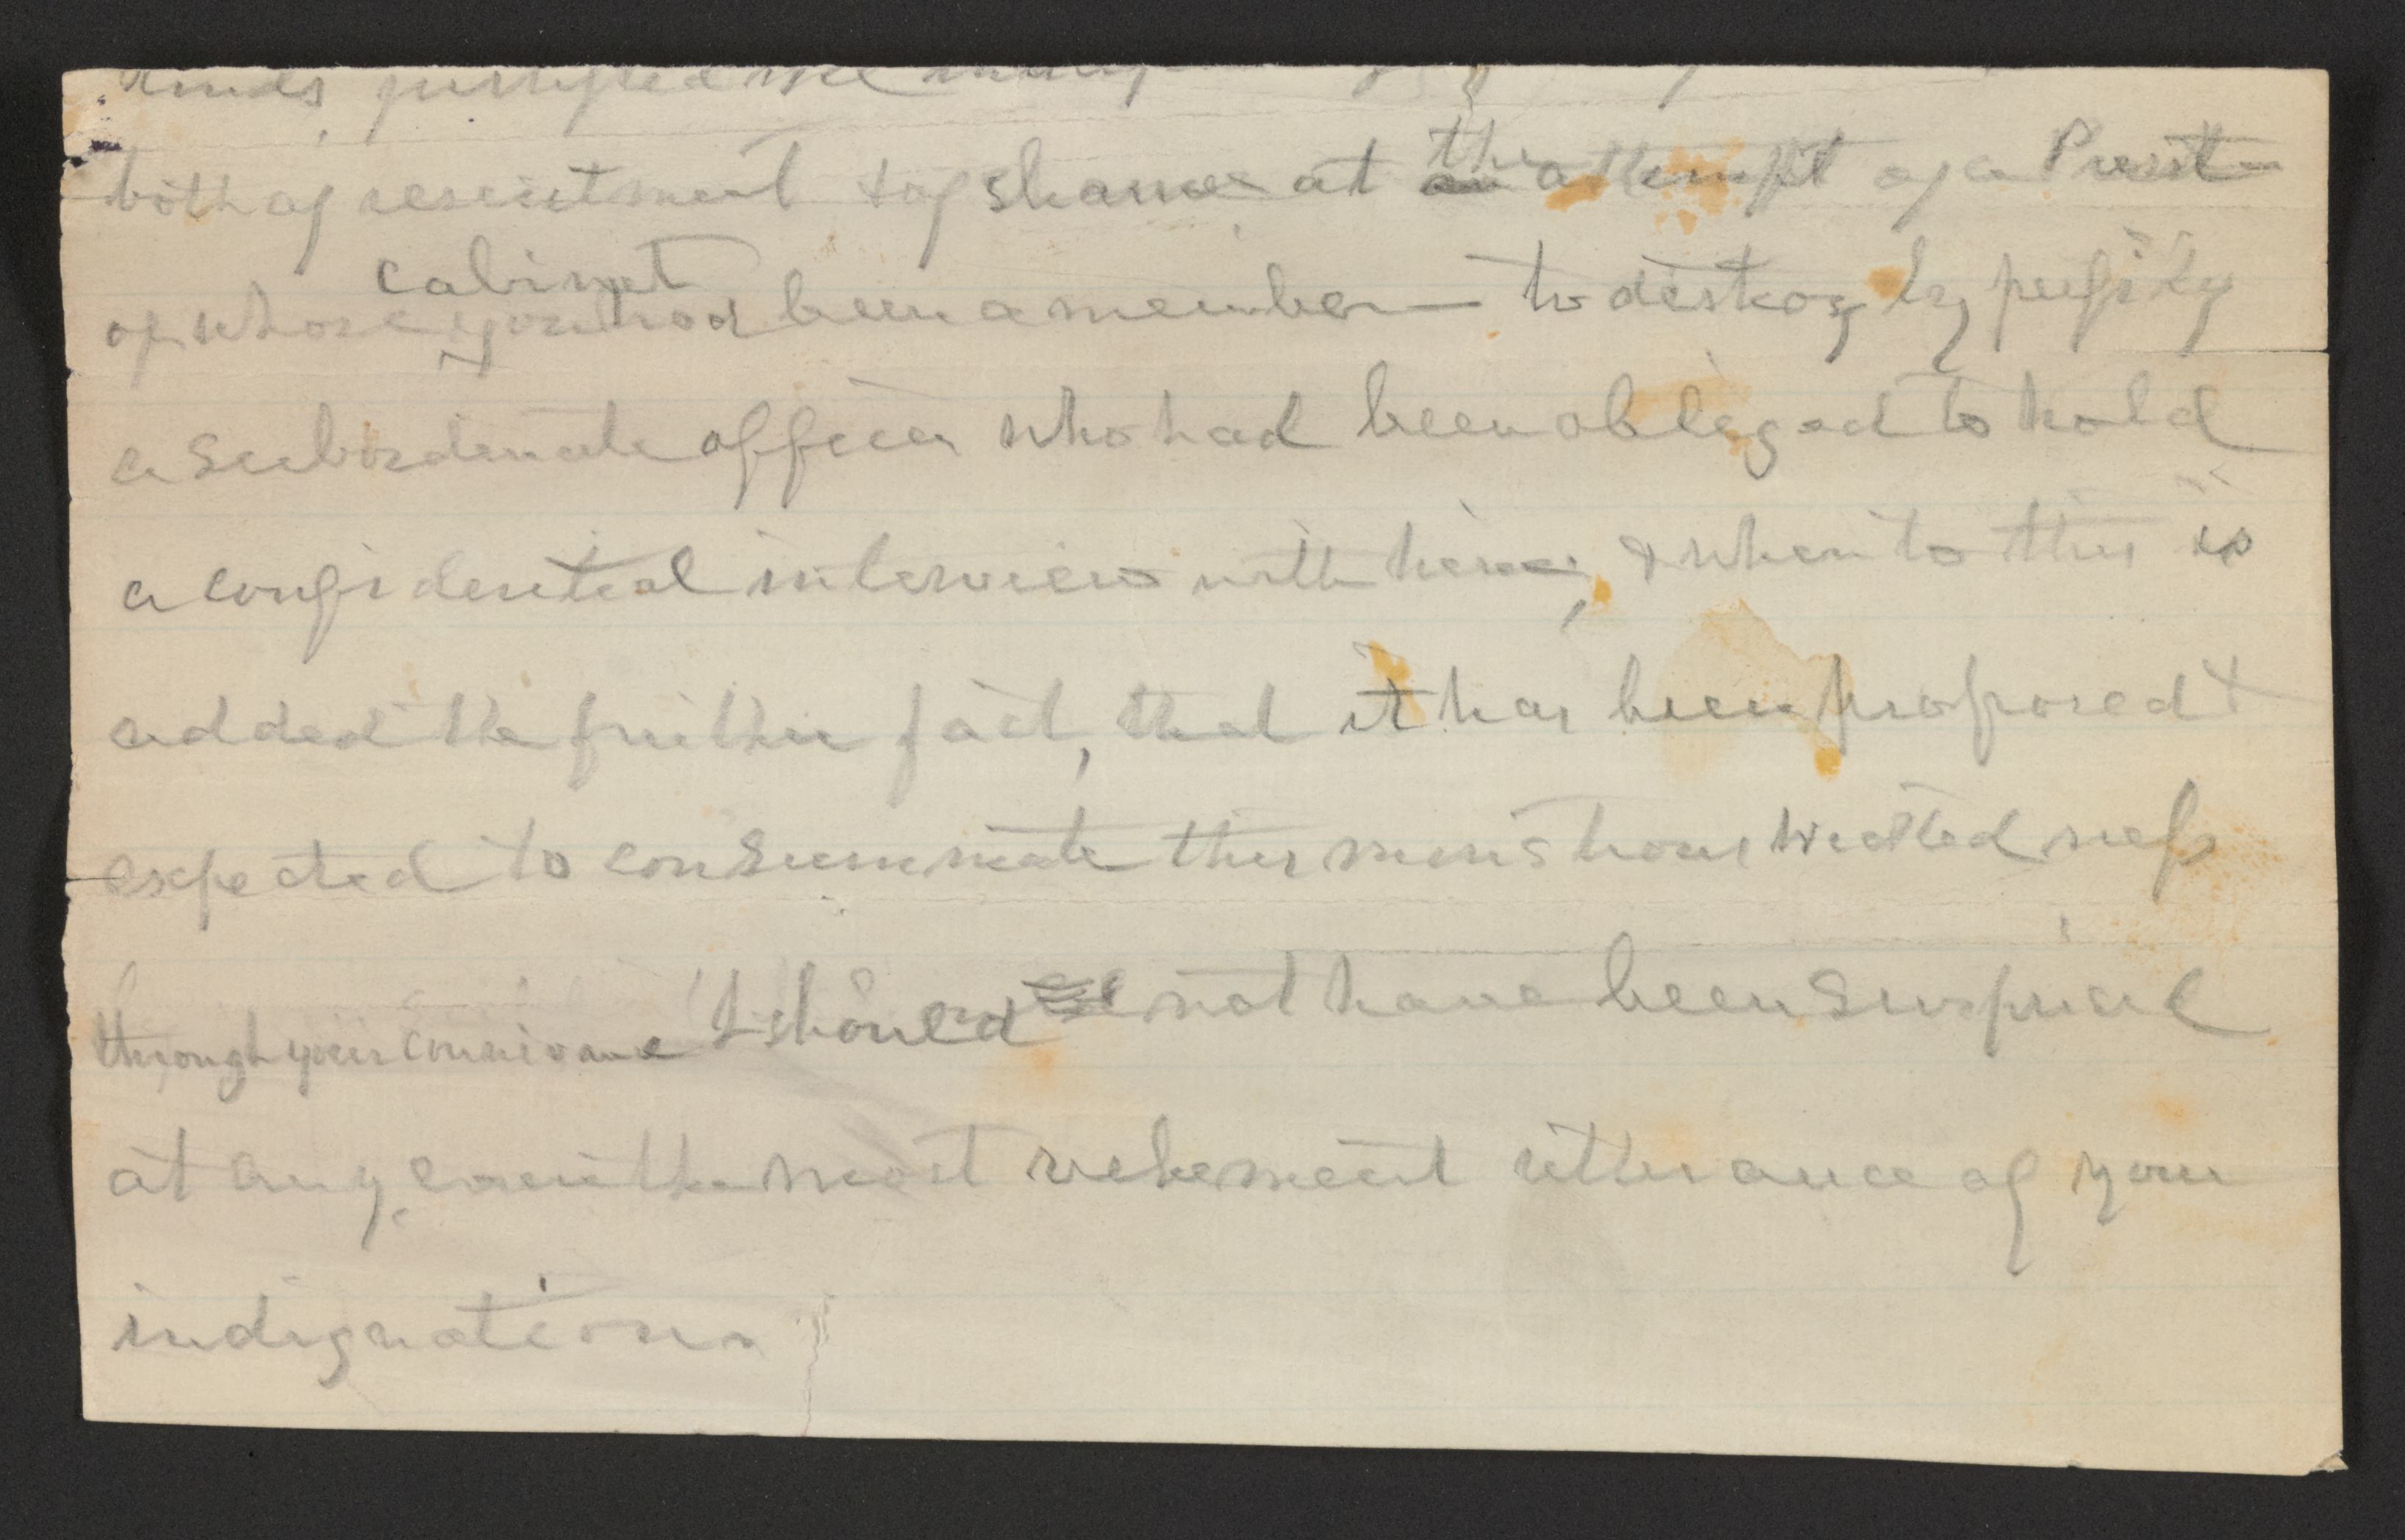 both of resentment & of shame at the attempt of a Presdt
of whose cabinet you had been a member — to destroy by perfidy
a subordinate officer who had been obliged to hold
a confidential interview with him, & when to this is
added the further fact, that it has been proposed &
expected to consummate this monstrous wickedness
through your connivance I should not have been surprised
at any, even the most vehement utterance of your
indignation.